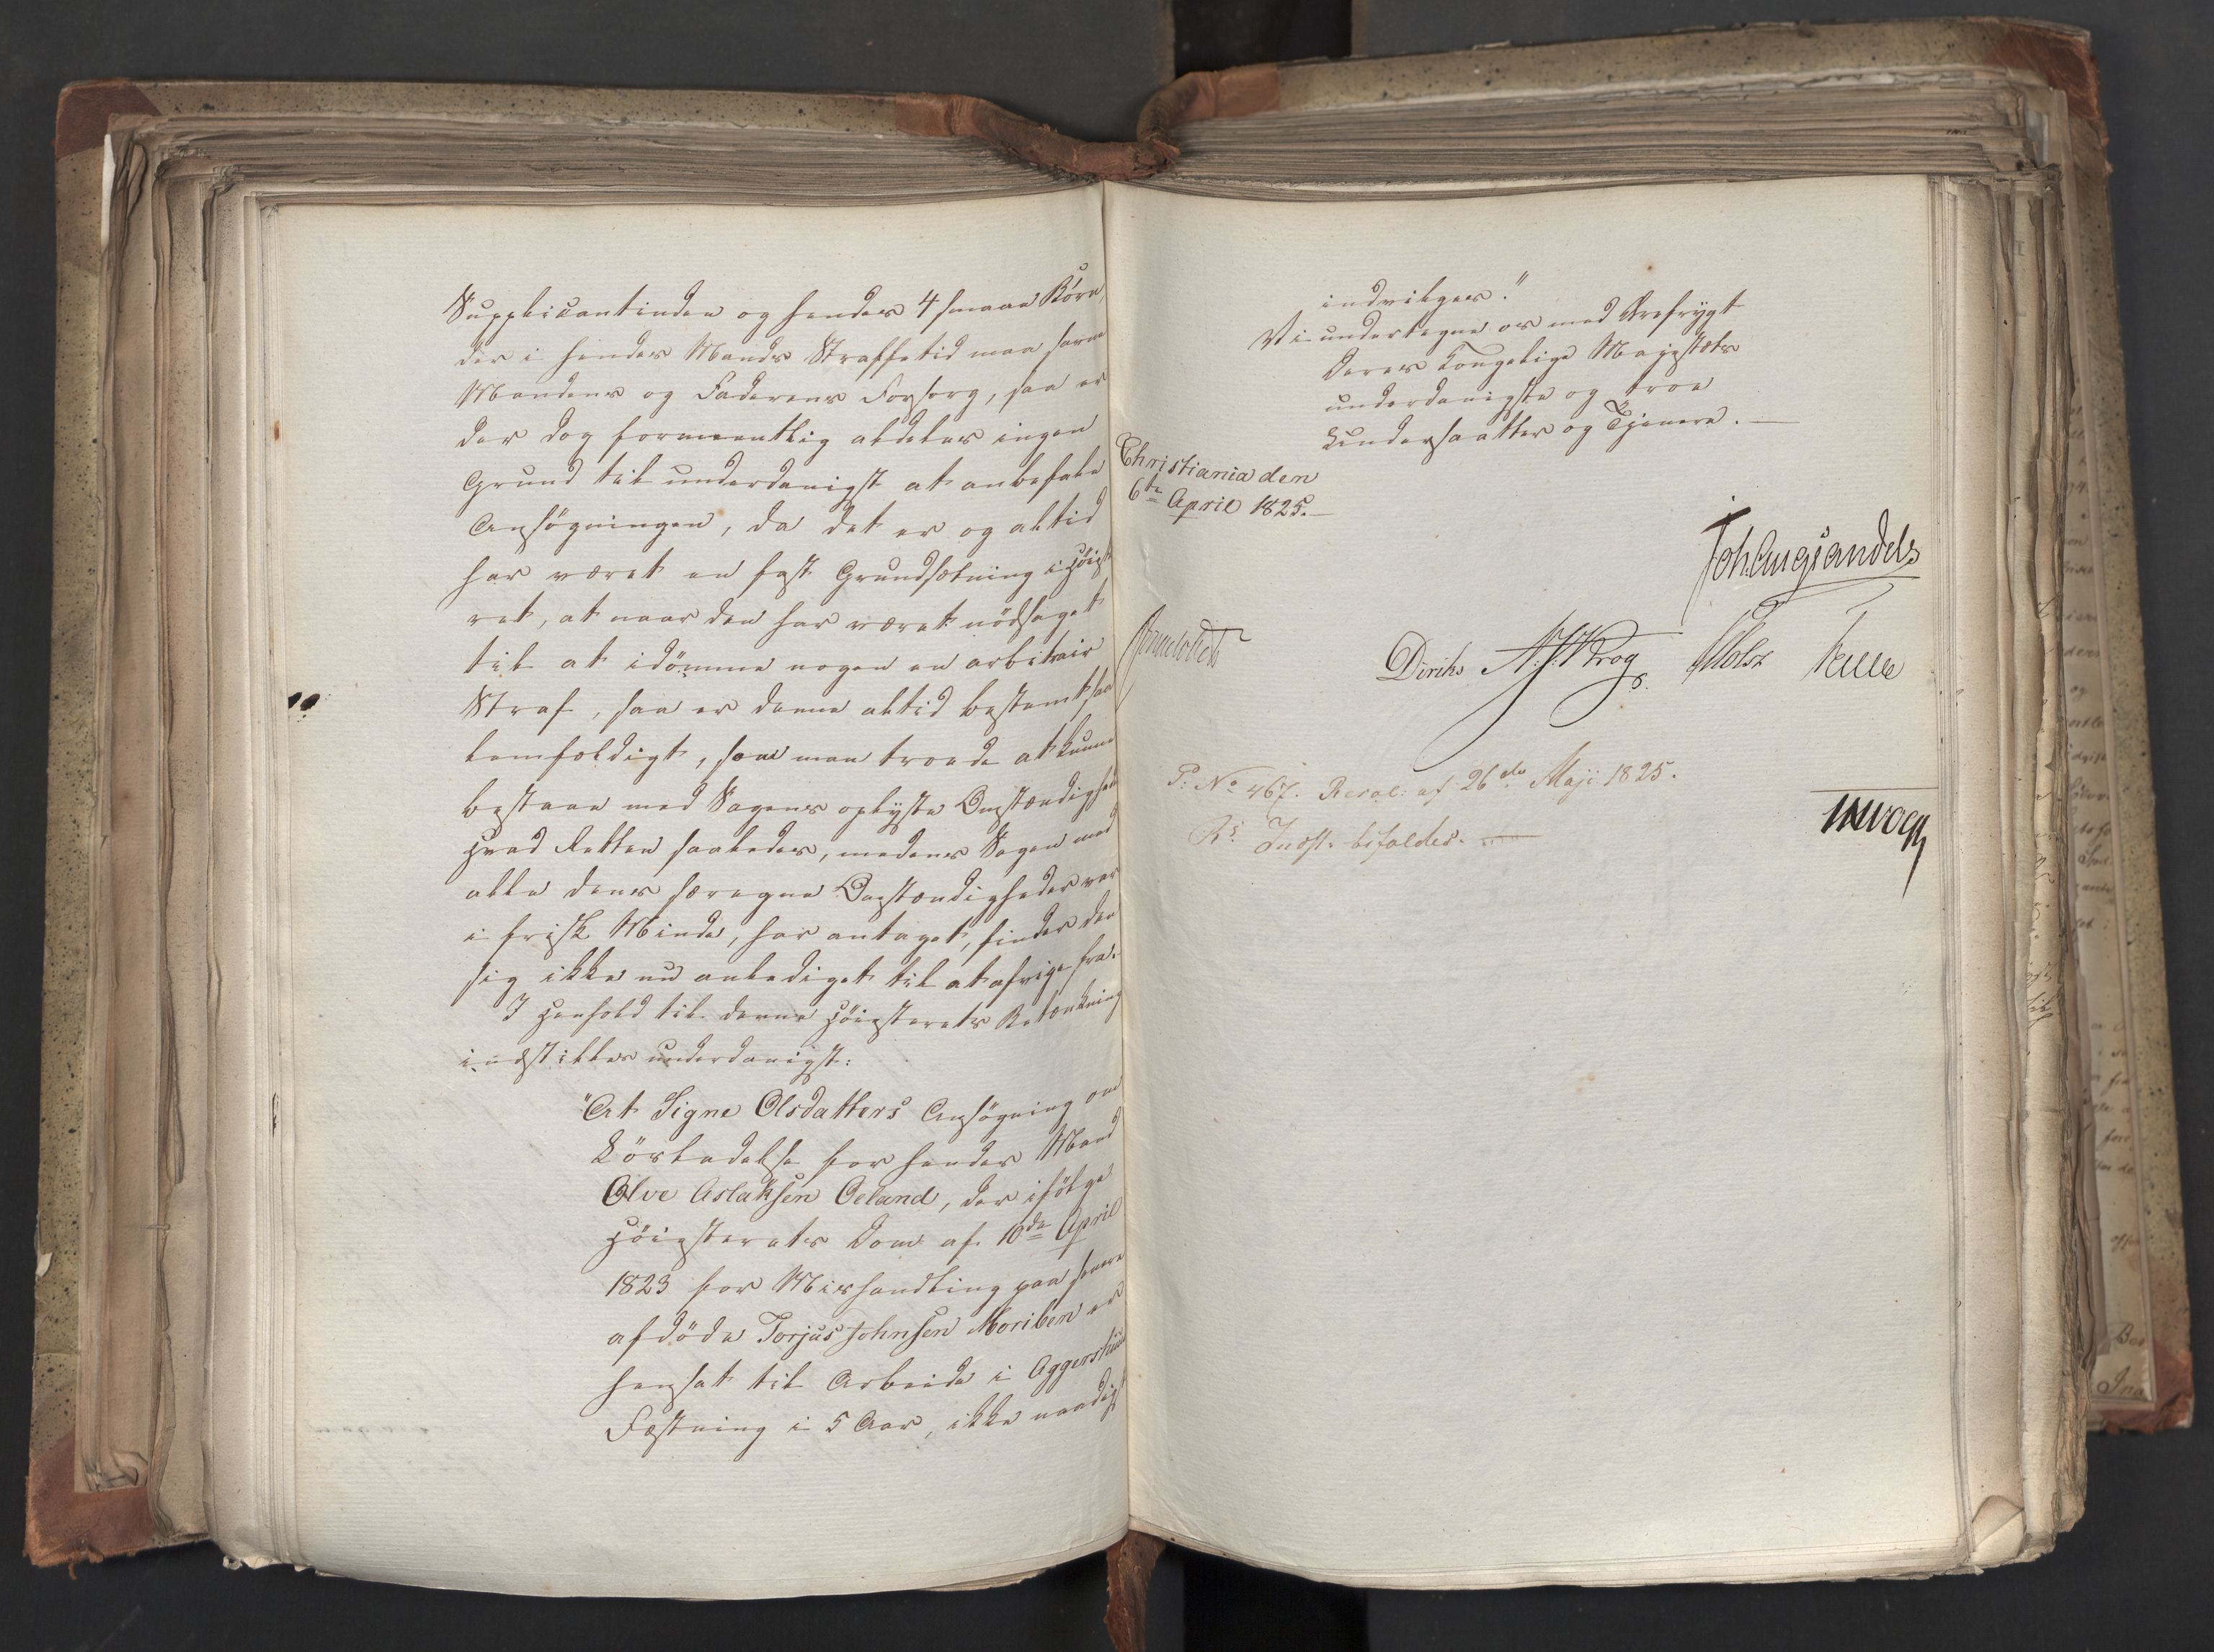 Supplicantinden og hendes 4 smaae Börn,
der i hendes Mands Straffetid maa savne
Mandens og Faderens Forsorg, saa er
der dog formeentlig aldeles ingen
Grund til underdanigst at anbefale
Ansögningen, da det er og altid
har været en fast Grundsætning i Höieste
ret, at naar den har været nödsaget
til at idömme nogen en arbitrair
Straf, saa er denne altid bestemt saa
lemfældigt, som man troede at kunne
bestaae med Sagens oplyste Omstændigheder
Hvad Retten saaledes, medens Sagen med
alle dens særegne Omstændigheder var
i frisk Minde, har antaget, finder den
sig ikke nu anlediget til at afvige fra.
I Henhold til denne Höiesterets Betænkning
indstilles underdanigst:
"At Signe Olsdatters Ansögning om
Lösladelse for hendes Mand
Olve Aslaksen Oeland, der ifölge
Höiesterets Dom af 10de April
1823 for Mishandling paa senere
afdöde Torjus Johnsen Moriben er
hensat til Arbeide i Aggershuus
Fæstning i 5 Aar, ikke naadigst
indvilges."
Vi undertegne os med Ærefrygt
Deres Kongelige Majestæts
underdanigste og troe
Undersaatter og Tjenere.
Christiania den
6te April 1825.
Joh. Aug Sandels
Diriks Krog Holst
P: No 467. Resol: af 26de Maji 1825.
Rs Indst. bifaldes.